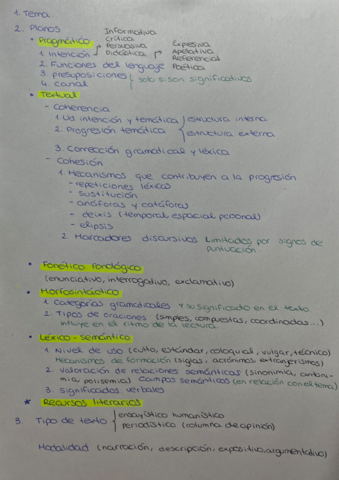 1. Tema
2. Planos
• Pragmático
Informativa
Crítica
Persuasiva
Didáctica
1. intención
Expresiva
Apelativa
Referencial
Poética
2. Funciones del lenguaje
3. presuposiciones
4. canal
solo si son significativos
• Textual
- Coherencia
1. Ud intención y temática
estructura interna
2. Progresión temática
estructura externa
3. Corrección gramatical y léxica
- Cohesión
1. Mecanismos que contribuyen a la progresión
- repeticiones léxicas
- sustitución
- anáforas y catáforas
- deixis (temporal espacial personal)
- elipsis
2. Marcadores discursivos Limitados por signos de puntuación
• Fonético fonológico
(enunciativo, interrogativo, exclamativo)
• Morfosintáctico
1. Categorías gramaticales y su significado en el texto
2. Tipos de oraciones (simples, compuestas, coordinadas...)
influye en el ritmo de la lectura
• Léxico - semántico
1. Nivel de uso (culto, estándar, coloquial, vulgar, técnico)
Mecanismos de formación (siglas, acrónimos extranjerismos)
2. Valoración de relaciones semánticas (sinonimia, antoni-
mia, polisemia) Campos semánticos (en relación con el tema)
3. significados verbales
* Recursos literarios
3. Tipo de texto
ensayístico humanístico
periodístico (columna de opinión)
Modalidad (narración, descripción, expositivo, argumentativo)